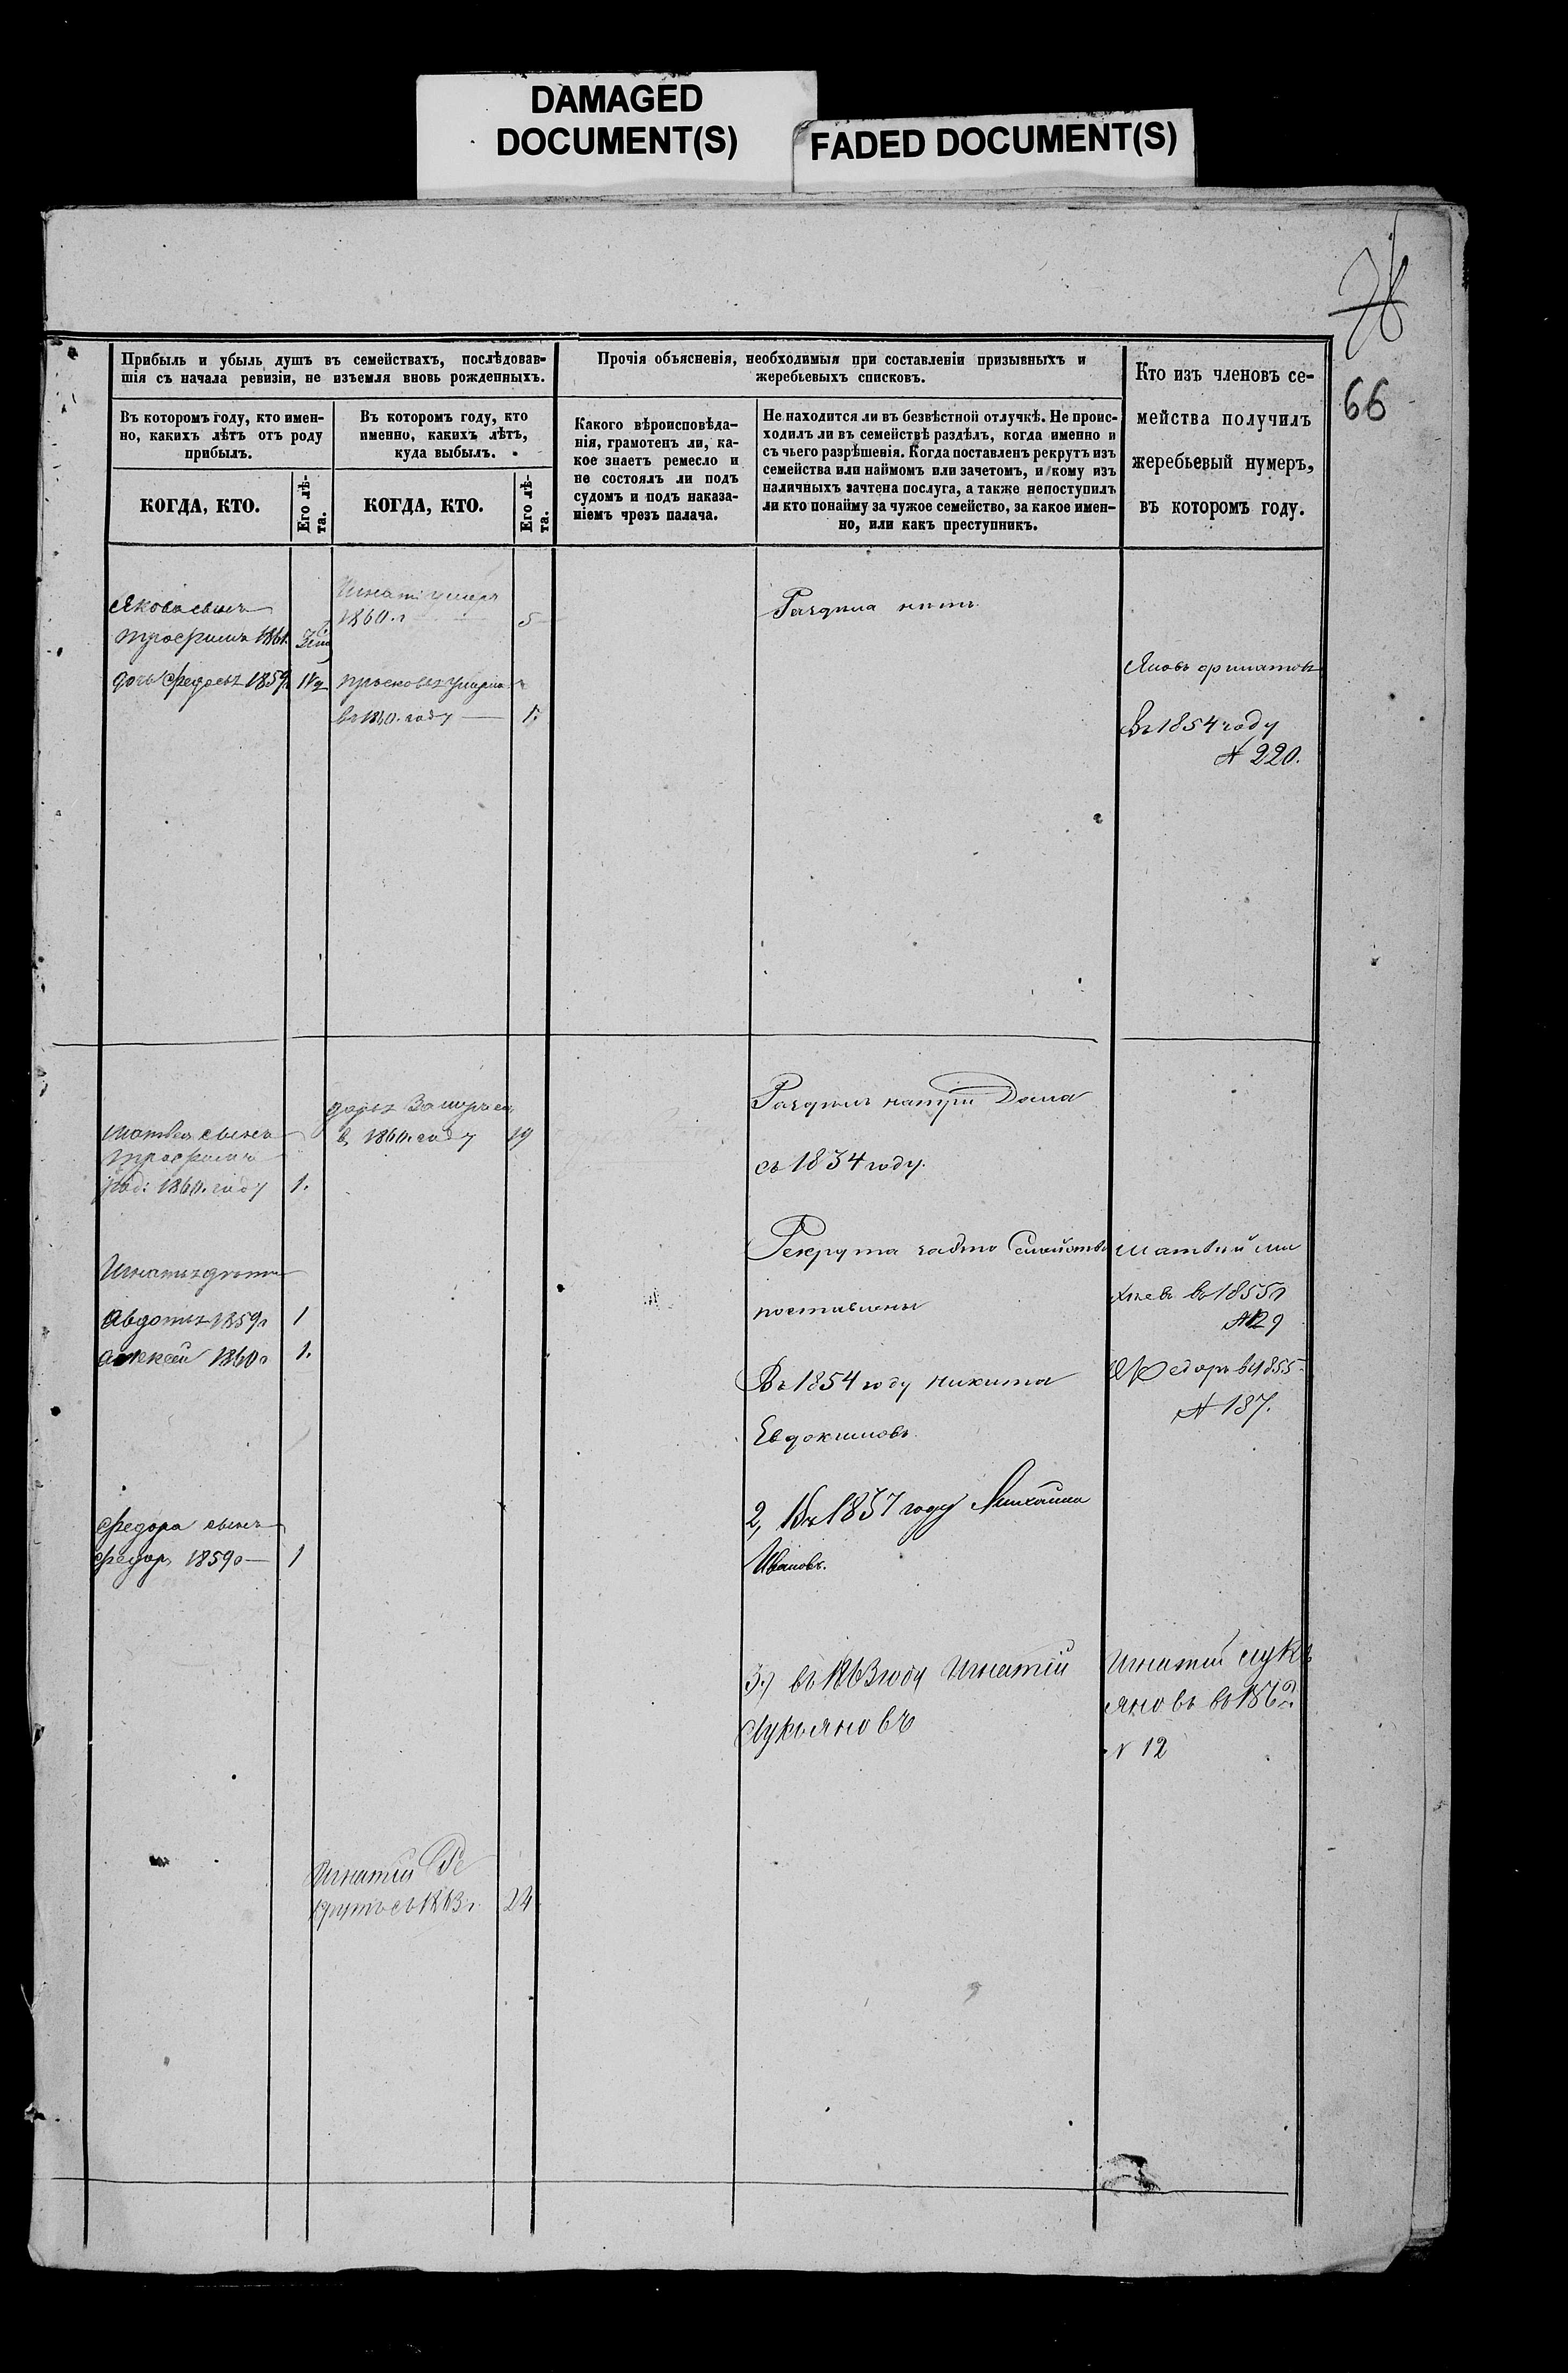 DAMAGED
DOCUMENT(S)
FADED DOCUMENT(S)
66
Прибыль и убыль душъ въ семействахъ, послѣдовав-
шія съ начала ревизіи, не изъемля вновь рожденныхъ.
Въ которомъ году, кто имен-
но, какихъ лѣтъ отъ роду
прибылъ.
КОГДА, КТО.
Его лѣ-
та.
Въ которомъ году, кто
именно, какихъ лѣтъ,
куда выбылъ.
КОГДА, КТО.
Его лѣ-
та.
Прочія объясненія, необходимыя при составленіи призывныхъ и
жеребьевыхъ списковъ.
Какого вѣроисповѣда-
нія, грамотенъ ли, ка-
кое знаетъ ремесло и
не состоялъ ли подъ
судомъ и подъ наказа-
ніемъ чрезъ палача.
Не находится ли въ безвѣстной отлучкѣ. Не проис-
ходилъ ли въ семействѣ раздѣлъ, когда именно и
съ чьего разрѣшенія. Когда поставленъ рекрутъ изъ
семейства или наймомъ или зачетомъ, и кому изъ
наличныхъ зачтена послуга, а также непоступилъ
ли кто понайму за чужое семейство, за какое имен-
но, или какъ преступникъ.
Кто изъ членовъ се-
мейства получилъ
жеребьевый нумеръ,
въ которомъ году.
Якова сынъ
Трофимъ 1861
дочь Федосья 1859
Игнатій умеръ
1860 г
5
Прасковья умерла
въ 1860 году
1.
Раздѣла нѣтъ
Яковъ Филатовъ
Въ 1854 году
№ 220.
Матвея сынъ
Трофимъ
род: 1860 году
1.
Дарья Замужъ
в 1860 году
19
Игнатья дѣти
Авдотья 1859 г
1
Алексей 1860
1.
Федора сынъ
Федоръ 1859
1
Игнатій Ре
крутъ съ 1863 г.
24
Раздѣлъ на три Дома
съ 1834 году.
Рекрута
поставлены
Въ 1854 году Никита
Евдокимовъ
2, Въ 1857 году Михайла
Ивановъ.
3.) въ 1863 году Игнатій
Лукьяновъ
Матвей Ми
хѣевъ въ 1855 г
№ 129
Федоръ въ 1855
№ 187.
Игнатій Лукь
яновъ въ 186
№ 12